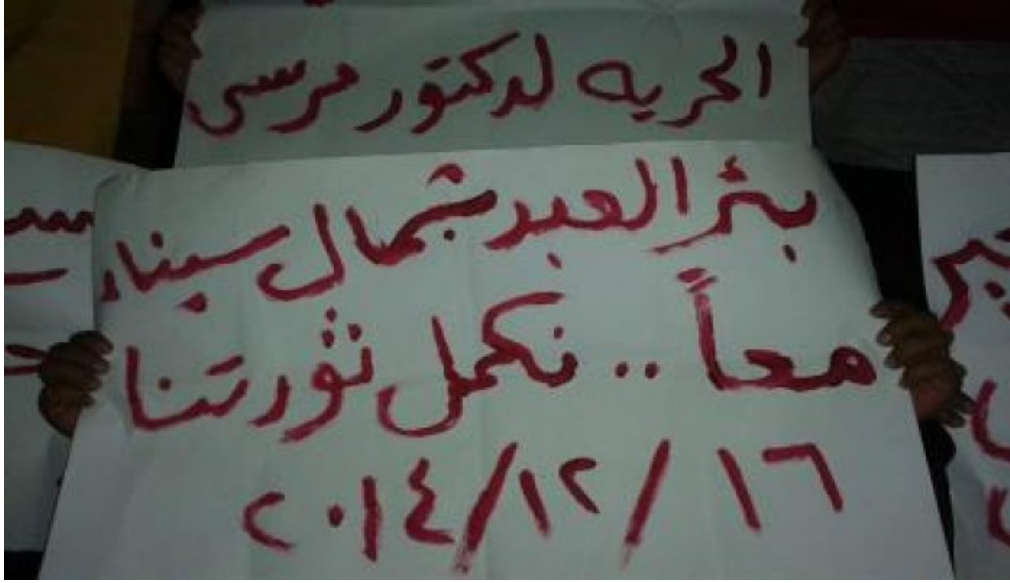 الحريه لدكتور مرسى
بئر العبد شمال سيناء
معاً .. نكمل ثورتنا
١٦ / ١٢ / ٢٠١٤